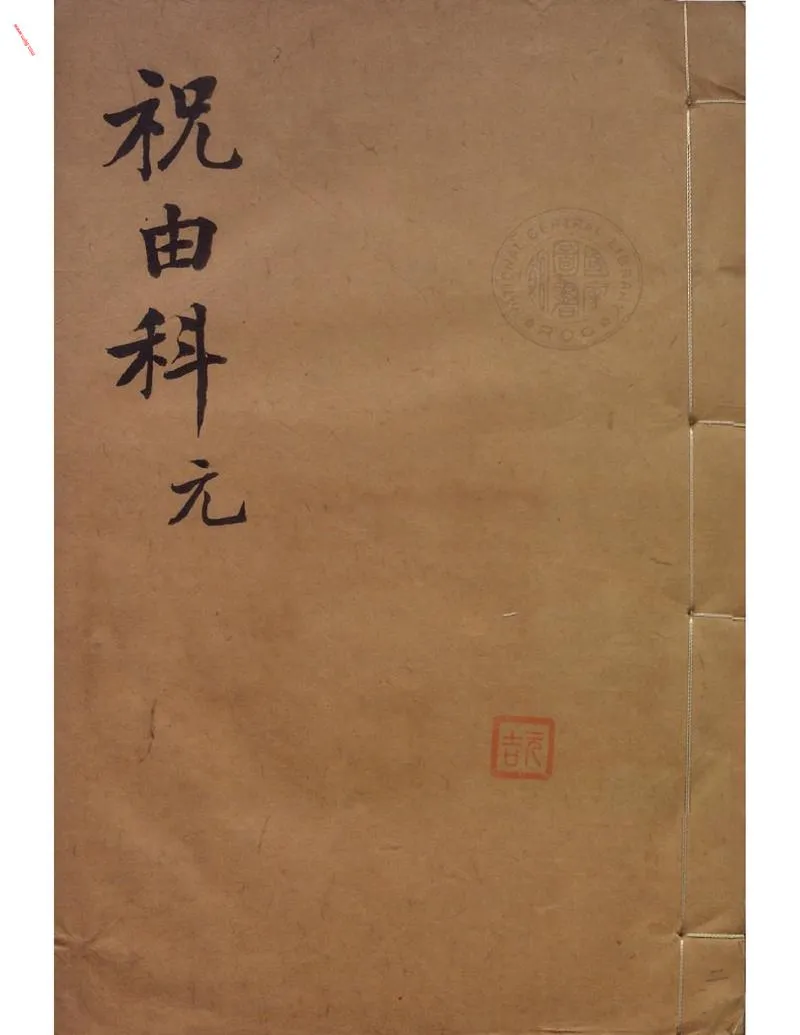 祝由科元
NATIONAL CENTRAL LIBRARY
R.O.C.
元吉